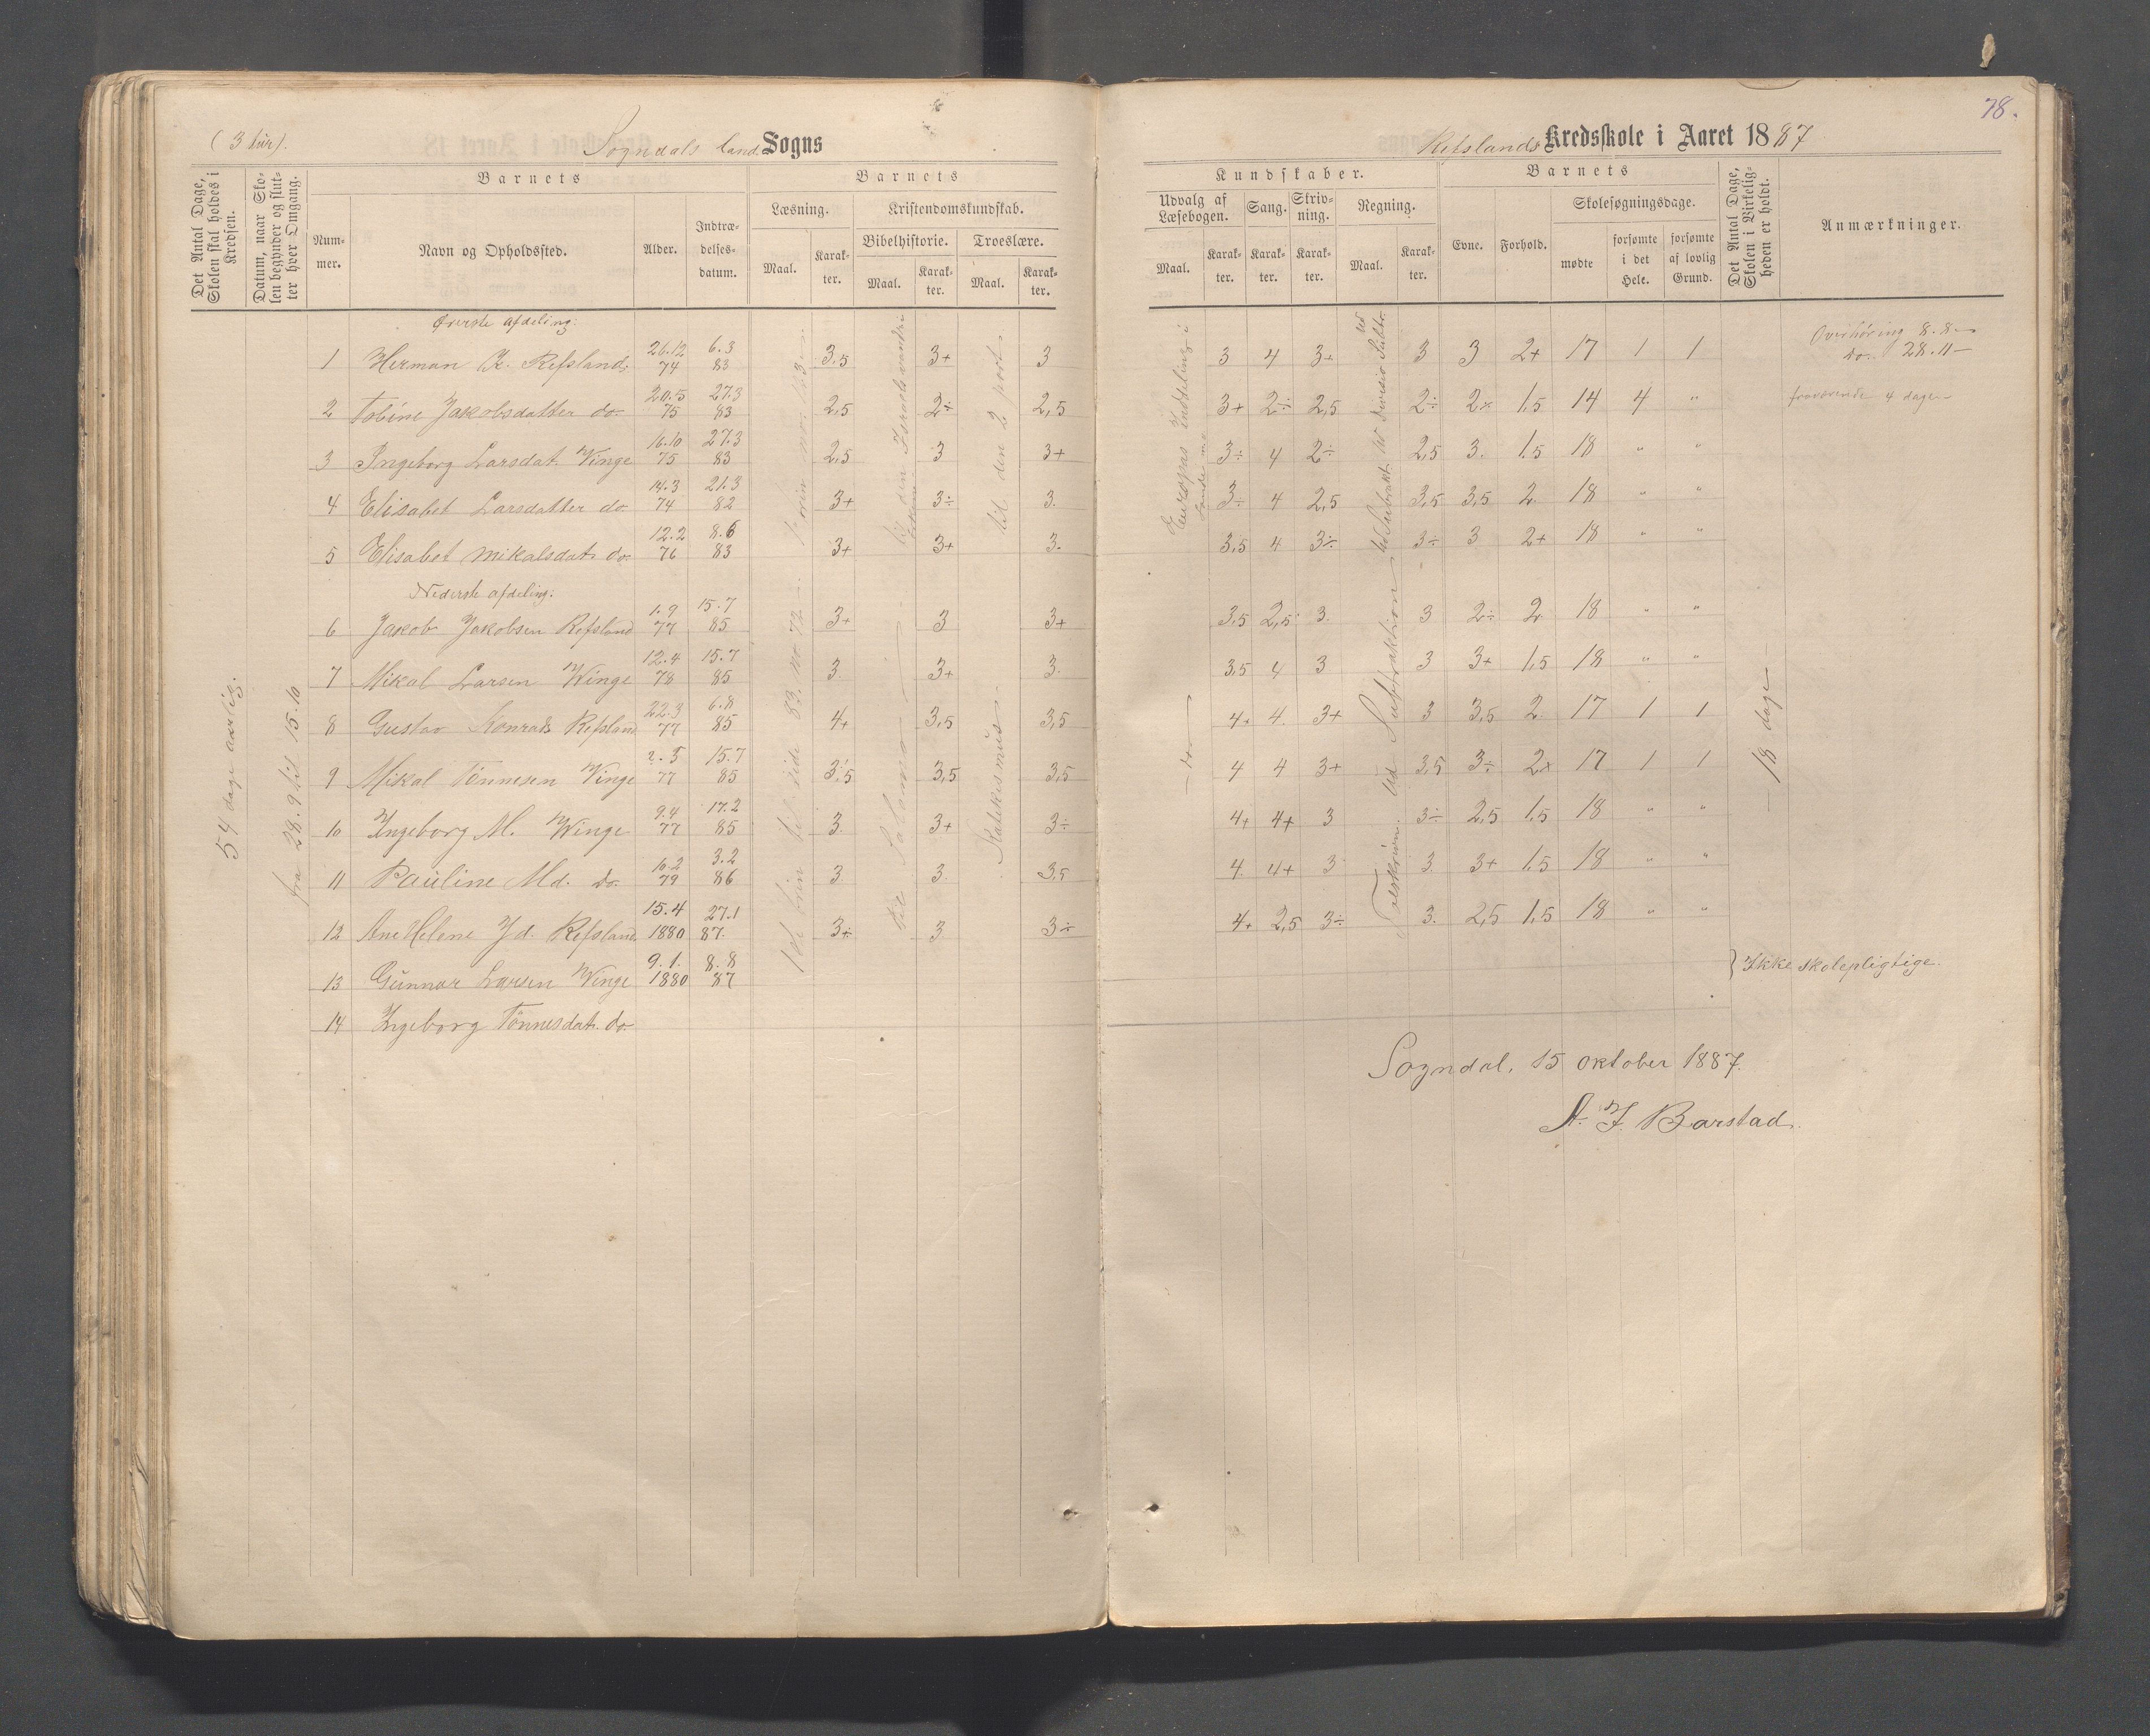 78.
(3 tur).
Sogndals land Sogns
Refslands Kredsskole i Aaret 1887
Det Antal Dage, Skolen skal holdes i Kredsen.
Datum, naar Skolen begynder og slutter hver Omgang.
Barnets
Nummer.
Navn og Opholdssted.
Alder.
Indtrædelsesdatum.
Barnets
Læsning.
Maal.
Karakter.
Kristendomskundskab.
Bibelhistorie.
Maal.
Karakter.
Troeslære.
Maal.
Karakter.
Kundskaber.
Udvalg af Læsebogen.
Maal.
Karakter.
Sang.
Karakter.
Skrivning.
Karakter.
Regning.
Maal.
Karakter.
Barnets
Evne.
Forhold.
Skolesøgningsdage.
mødte
forsømte i det Hele.
forsømte af lovlig Grund.
Det Antal Dage, Skolen i Virkeligheden er holdt.
Anmærkninger.
54 dage aarlig.
fra 28.9 til 15.10
Øverste afdeling:
1 Herman K. Refsland, 26.12 74 6.3 83 3,5 3+ 3 3 4 3+ 3 3 2+ 17 1 1 Overhøring 8.8
do. 28.11
2 Tobine Jakobsdatter do. 20.5 75 27.3 83 2,5 2÷ 2,5 3+ 2÷ 2,5 2÷ 2+ 1,5 14 4 " fraværende 4 dage
3 Ingeborg Larsdat. Vinge 16.10 75 27.3 83 2,5 3 3+ 3÷ 4 2÷ 2,5 3. 1,5 18 " "
4 Elisabet Larsdatter do 14.3 74 21.3 82 3+ 3÷ 3. 3÷ 4 2,5 3,5 3,5 2 18 " "
5 Elisabet Mikalsdat. do. 12.2 76 8.6 83 3+ 3+ 3. 3,5 4 3÷ 3÷ 3 2+ 18 " "
Nederste afdeling.
6 Jakob Jakobsen Refsland 1.9 77 15.7 85 3+ 3 3+ 3,5 2,5 3. 3 2÷ 2 18 " "
7 Mikal Larsen Vinge 12.4 78 15.7 85 3. 3+ 3. 3,5 4 3 3 3+ 1,5 18 " "
8 Gustav Konrads Refsland 22.3 77 6.8 85 4+ 3,5 3,5 4+ 4. 3+ 3 3,5 2. 17 1 1
9 Mikal Tönnesen Vinge 2.5 77 15.7 85 3,5 3,5 3,5 4 4 3+ 3,5 3÷ 2+ 17 1 1
10 Ingeborg M. Vinge 9.4 77 17.2 85 3. 3+ 3÷ 4+ 4+ 3 3÷ 2,5 1,5 18 " "
11 Pauline Md. do. 10.2 79 3.2 86 3. 3. 3,5 4 4+ 3 3. 3+ 1,5 18 " "
12 Ane Helene Jd. Refsland 15.4 1880 27.1 87. 3÷ 3 3÷ 4+ 2,5 3÷ 3. 2,5 1,5 18 " "
13 Gunnar Larsen Vinge 9.1. 1880 8.8 87 } Ikke skolepligtige.
14 Ingeborg Tönnesdat. do.
til den 2 part
Katekismus
Europas Inddeling i
do
18 dage
Sogndal, 15 oktober 1887.
A. J. Barstad.